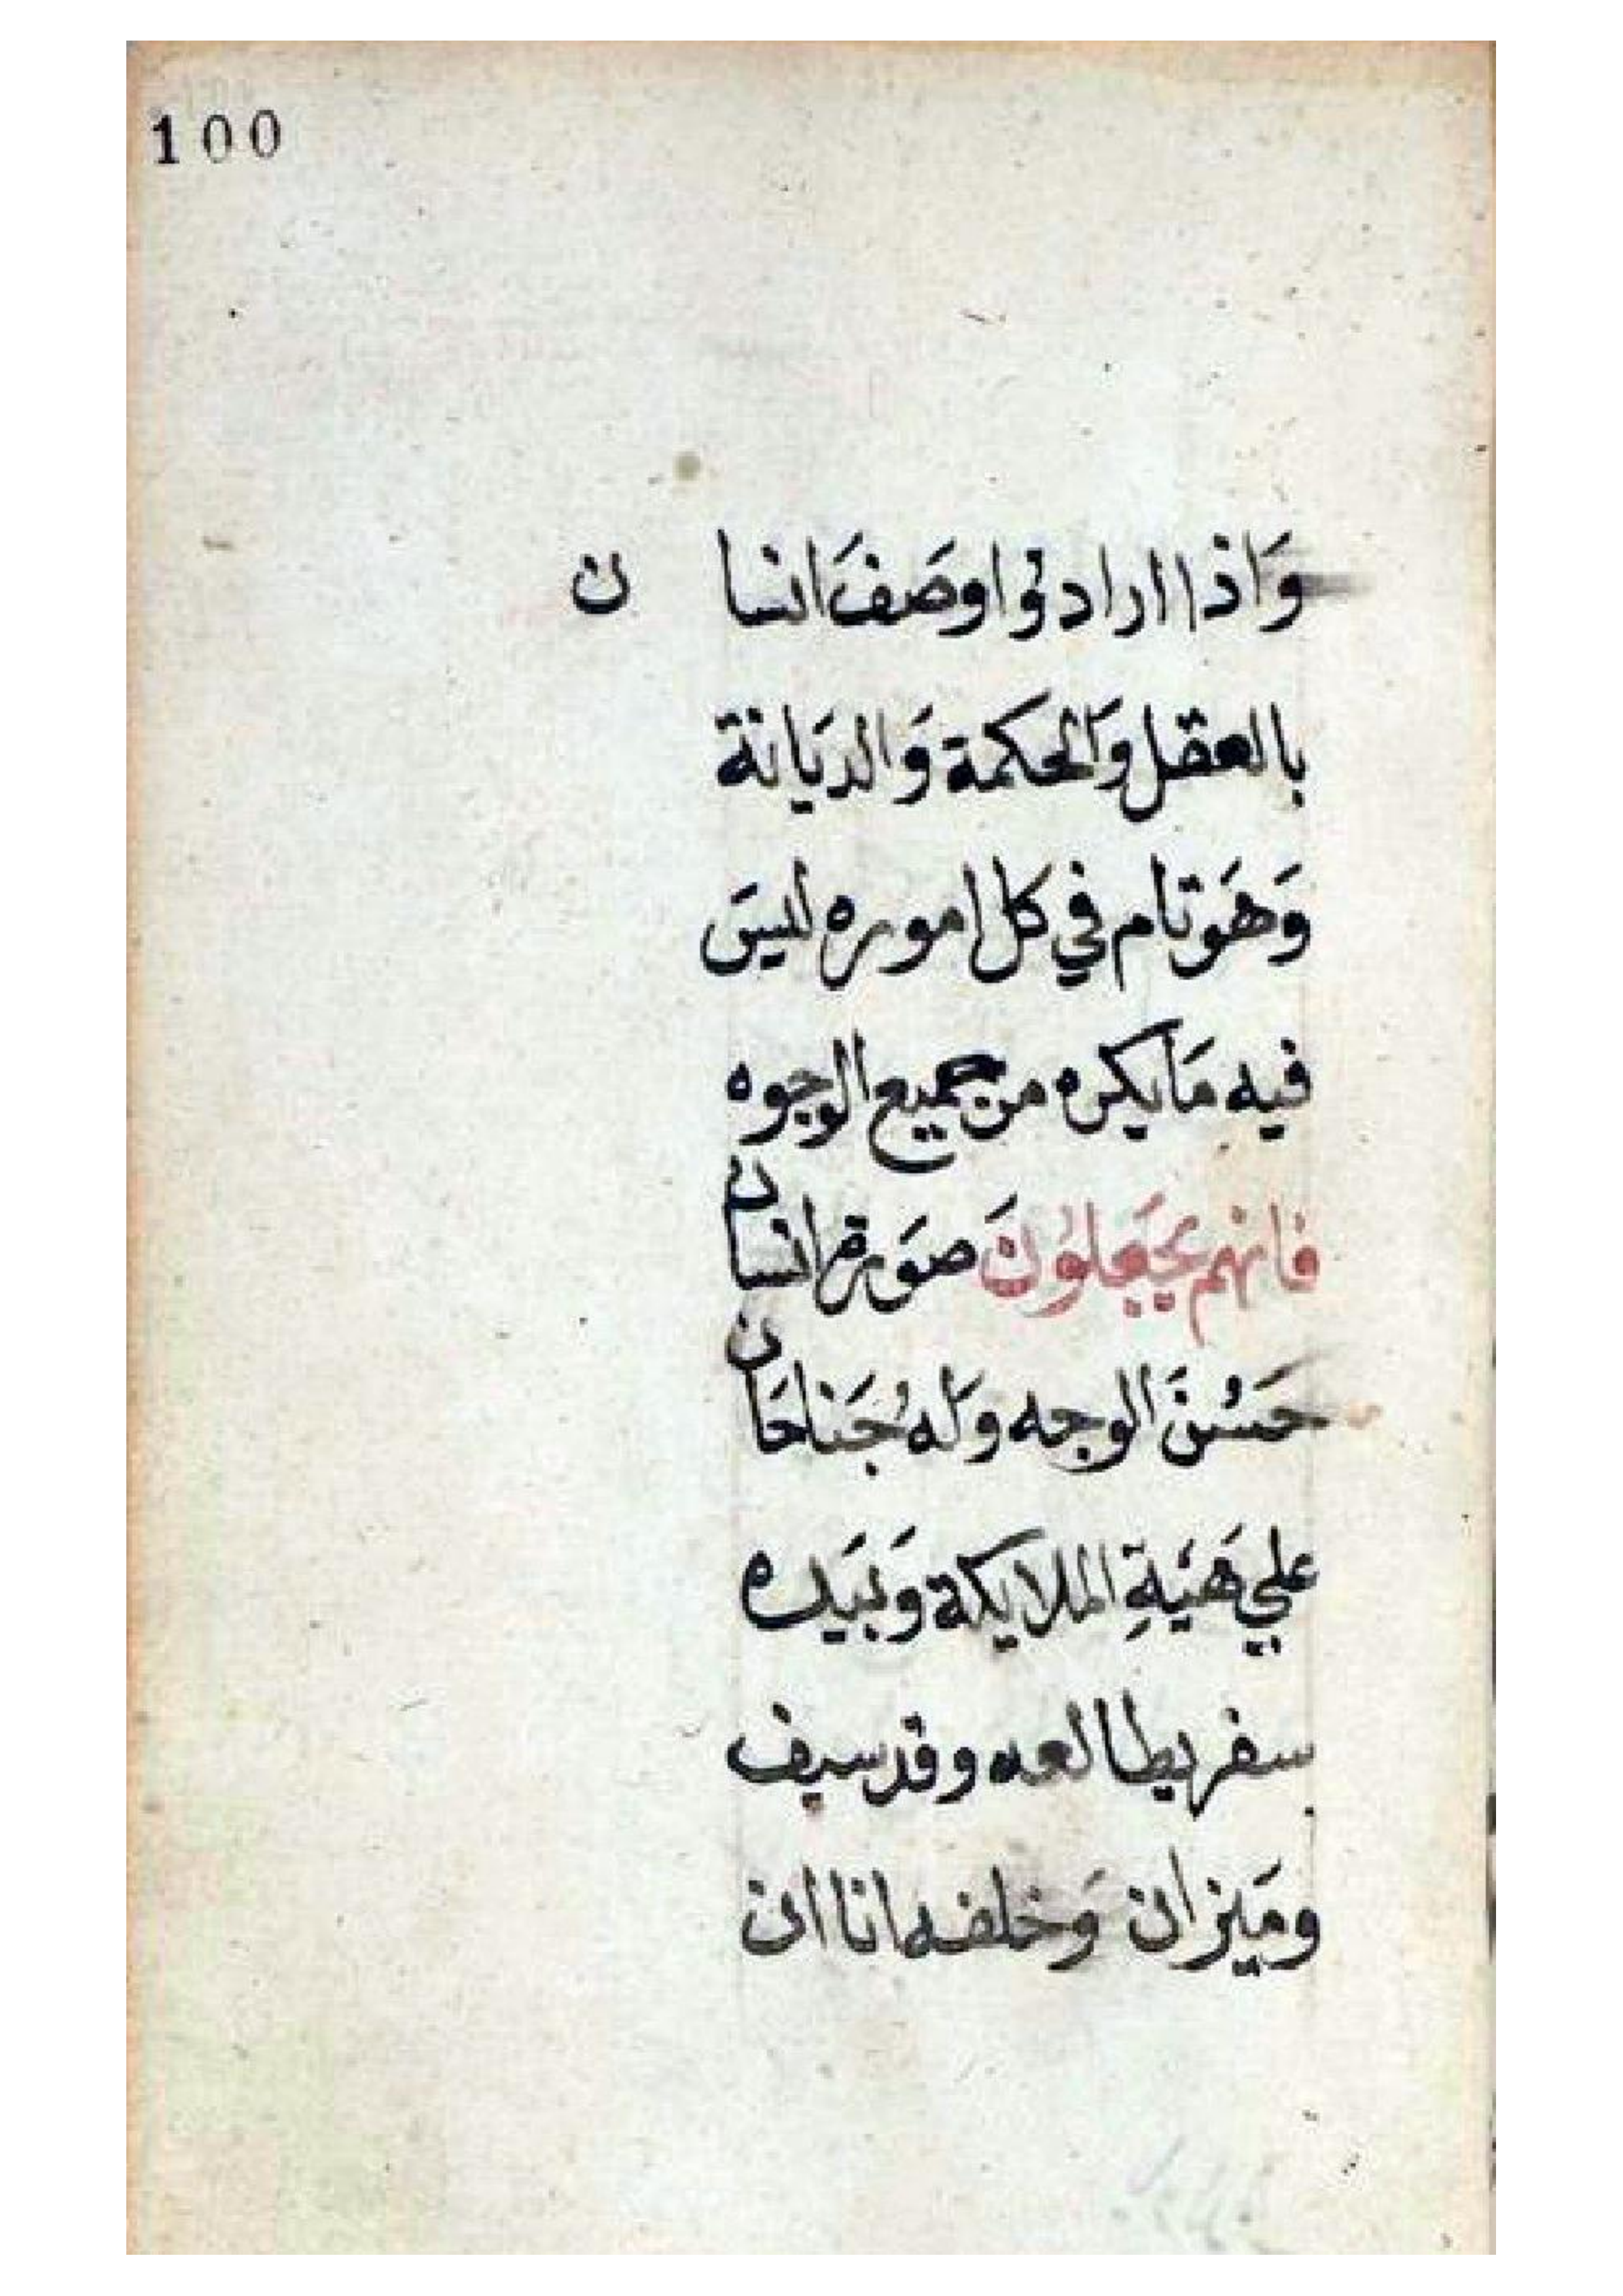 100
وَاذا ارادوا وصَفَ انسان
بالعقل وَالحكمة وَالديَانة
وَهَوَ تام في كل اموره ليسَ
فيه مَا يكره من جميع الوجوه
فانهم يجَعَلوُنَ صَورة انسان
حَسُنَ الوجه وَله جَناحَان
علي هَيَةِ الملايكة وَبيَده
سفر يطالعه وقد سيف
وميَزان وَخلفه انا ان